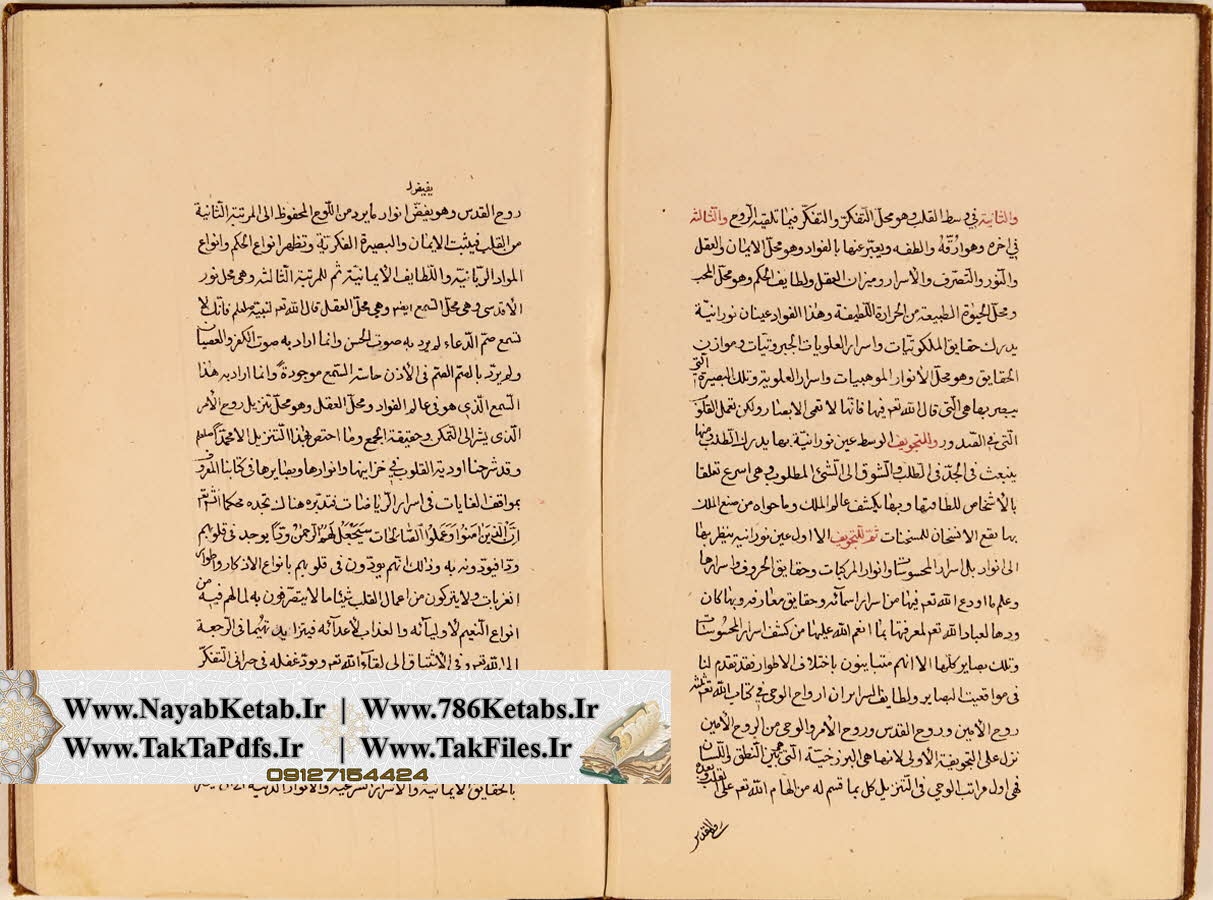 والثانية في وسط القلب وهو محل التفكر والتفكر فيما تلقيه الروح والثالثة
في اخره وهو ارقه والطفه ويعبر عنها بالفواد وهو محل الايمان والعقل
والنور والتصرف والاسرار وميزان العقل ولطايف الحكم وهو محل المحب
ومحل الحيوة الطبيعية من الحرارة اللطيفة وهذا الفواد عينان نورانية
يدرك حقايق الملكوتيات واسرار العلويات الجبروتيات وموازن
الحقايق وهو محل الانوار الموهبيات واسرار العلوية وتلك البصيرة التي
يبصر بها هي التي قال الله تعم فيها فانها لا تعمى الابصار ولكن تعمى القلوب
التي في الصدور وللتجويف الوسط عين نورانية بها يدرك الطلب ومنها
ينبعث في الجد في الطلب والشوق الى الشئ المطلوب وهي اسرع تعلقا
بالاشخاص للطافتها وبها يكشف عالم الملك وما حواه من صنع الملك
بها يقع الانتحان للمسخنات ثم للتجويف الاول عين نورانيه ينظر بها
الى انوار بل اسرار المحسوسات وانوار المركبات وحقايق الحروف واسرارها
وعلم ما اودع الله تعم فيها من اسرار اسمائه وحقايق معارفه وبها كان
ودها لعباد الله تعم لمعرفتها بما انعم الله عليها من كشف اسرار المحسوسات
وتلك بصاير كلها الا انهم متباينون باختلاف الاطوار فقد تقدم لنا
في مواقعيت البصاير ولطايف السراير ان ارواح الوحي في كتاب الله تعم ثلثه
روح الامين وروح القدس وروح الامر والوحي من الروح الامين
نزل على التجويفة الاولى لانها هي البرزخية التي بين النطق واللسان
فهي اول مراتب الوحي في التنزيل كل بما قسم له من الهام الله تعم على القلب وبعده
روح القدس
روح القدس وهو يفيض انوار ما يرد من اللوح المحفوظ الى المرتبة الثانية
من القلب فيثبت الايمان والبصيرة الفكرية وتظهر انواع الحكم وانواع
المواد الربانية واللطايف الايمانية ثم للمرتبة الثالثة وهي محل نور
الاقدسي وهي محل السمع ايضا وهي محل العقل قال الله تعم لنبيه صلعم فانك لا
تسمع صم الدعاء لم يرد به صوت الحسن وانما اراد به صوت الكفر والعصيان
ولم يرد بالصم الصم في الاذن حاسة السمع موجودة وانما اراد به هذا
السمع الذي هو في عالم الفواد ومحل العقل وهو محل تنزيل روح الامر
الذي يشر الى التمكن وحقيقة الجمع وما احتص في هذا التنزيل الا محمدا صلعم
وقد شرحنا اودية القلوب في خزاينها وانوارها وبصايرها في كتابنا المعروف
بمواقف الغايات في اسرار الرياضات فتدبره هناك تجده محكما انش تعم
ان الذين امنوا وعملوا الصالحات سيجعل لهم الرحمن ودا يوجد في قلوبهم
ودا فيودونه به وذلك انهم يودون في قلوبهم بانواع الاذكار واطوار
القربات ولا يتركون من اعمال القلب شيئا ما لا يتصرفون به لما لهم فيه من
انواع النعيم لاوليائه والعذاب لاعدائه فيتزايد تهيما في الرجعة
الى الله تعم وفي الاشتياق الى لقاء الله تعم ويود غفله في صرافي التفكر
Www.NayabKetab.Ir | Www.786Ketabs.Ir
Www.TakTaPdfs.Ir | Www.TakFiles.Ir
09127154424
بالحقايق الايمانية والاسرار الشرعية والانوار الدنية